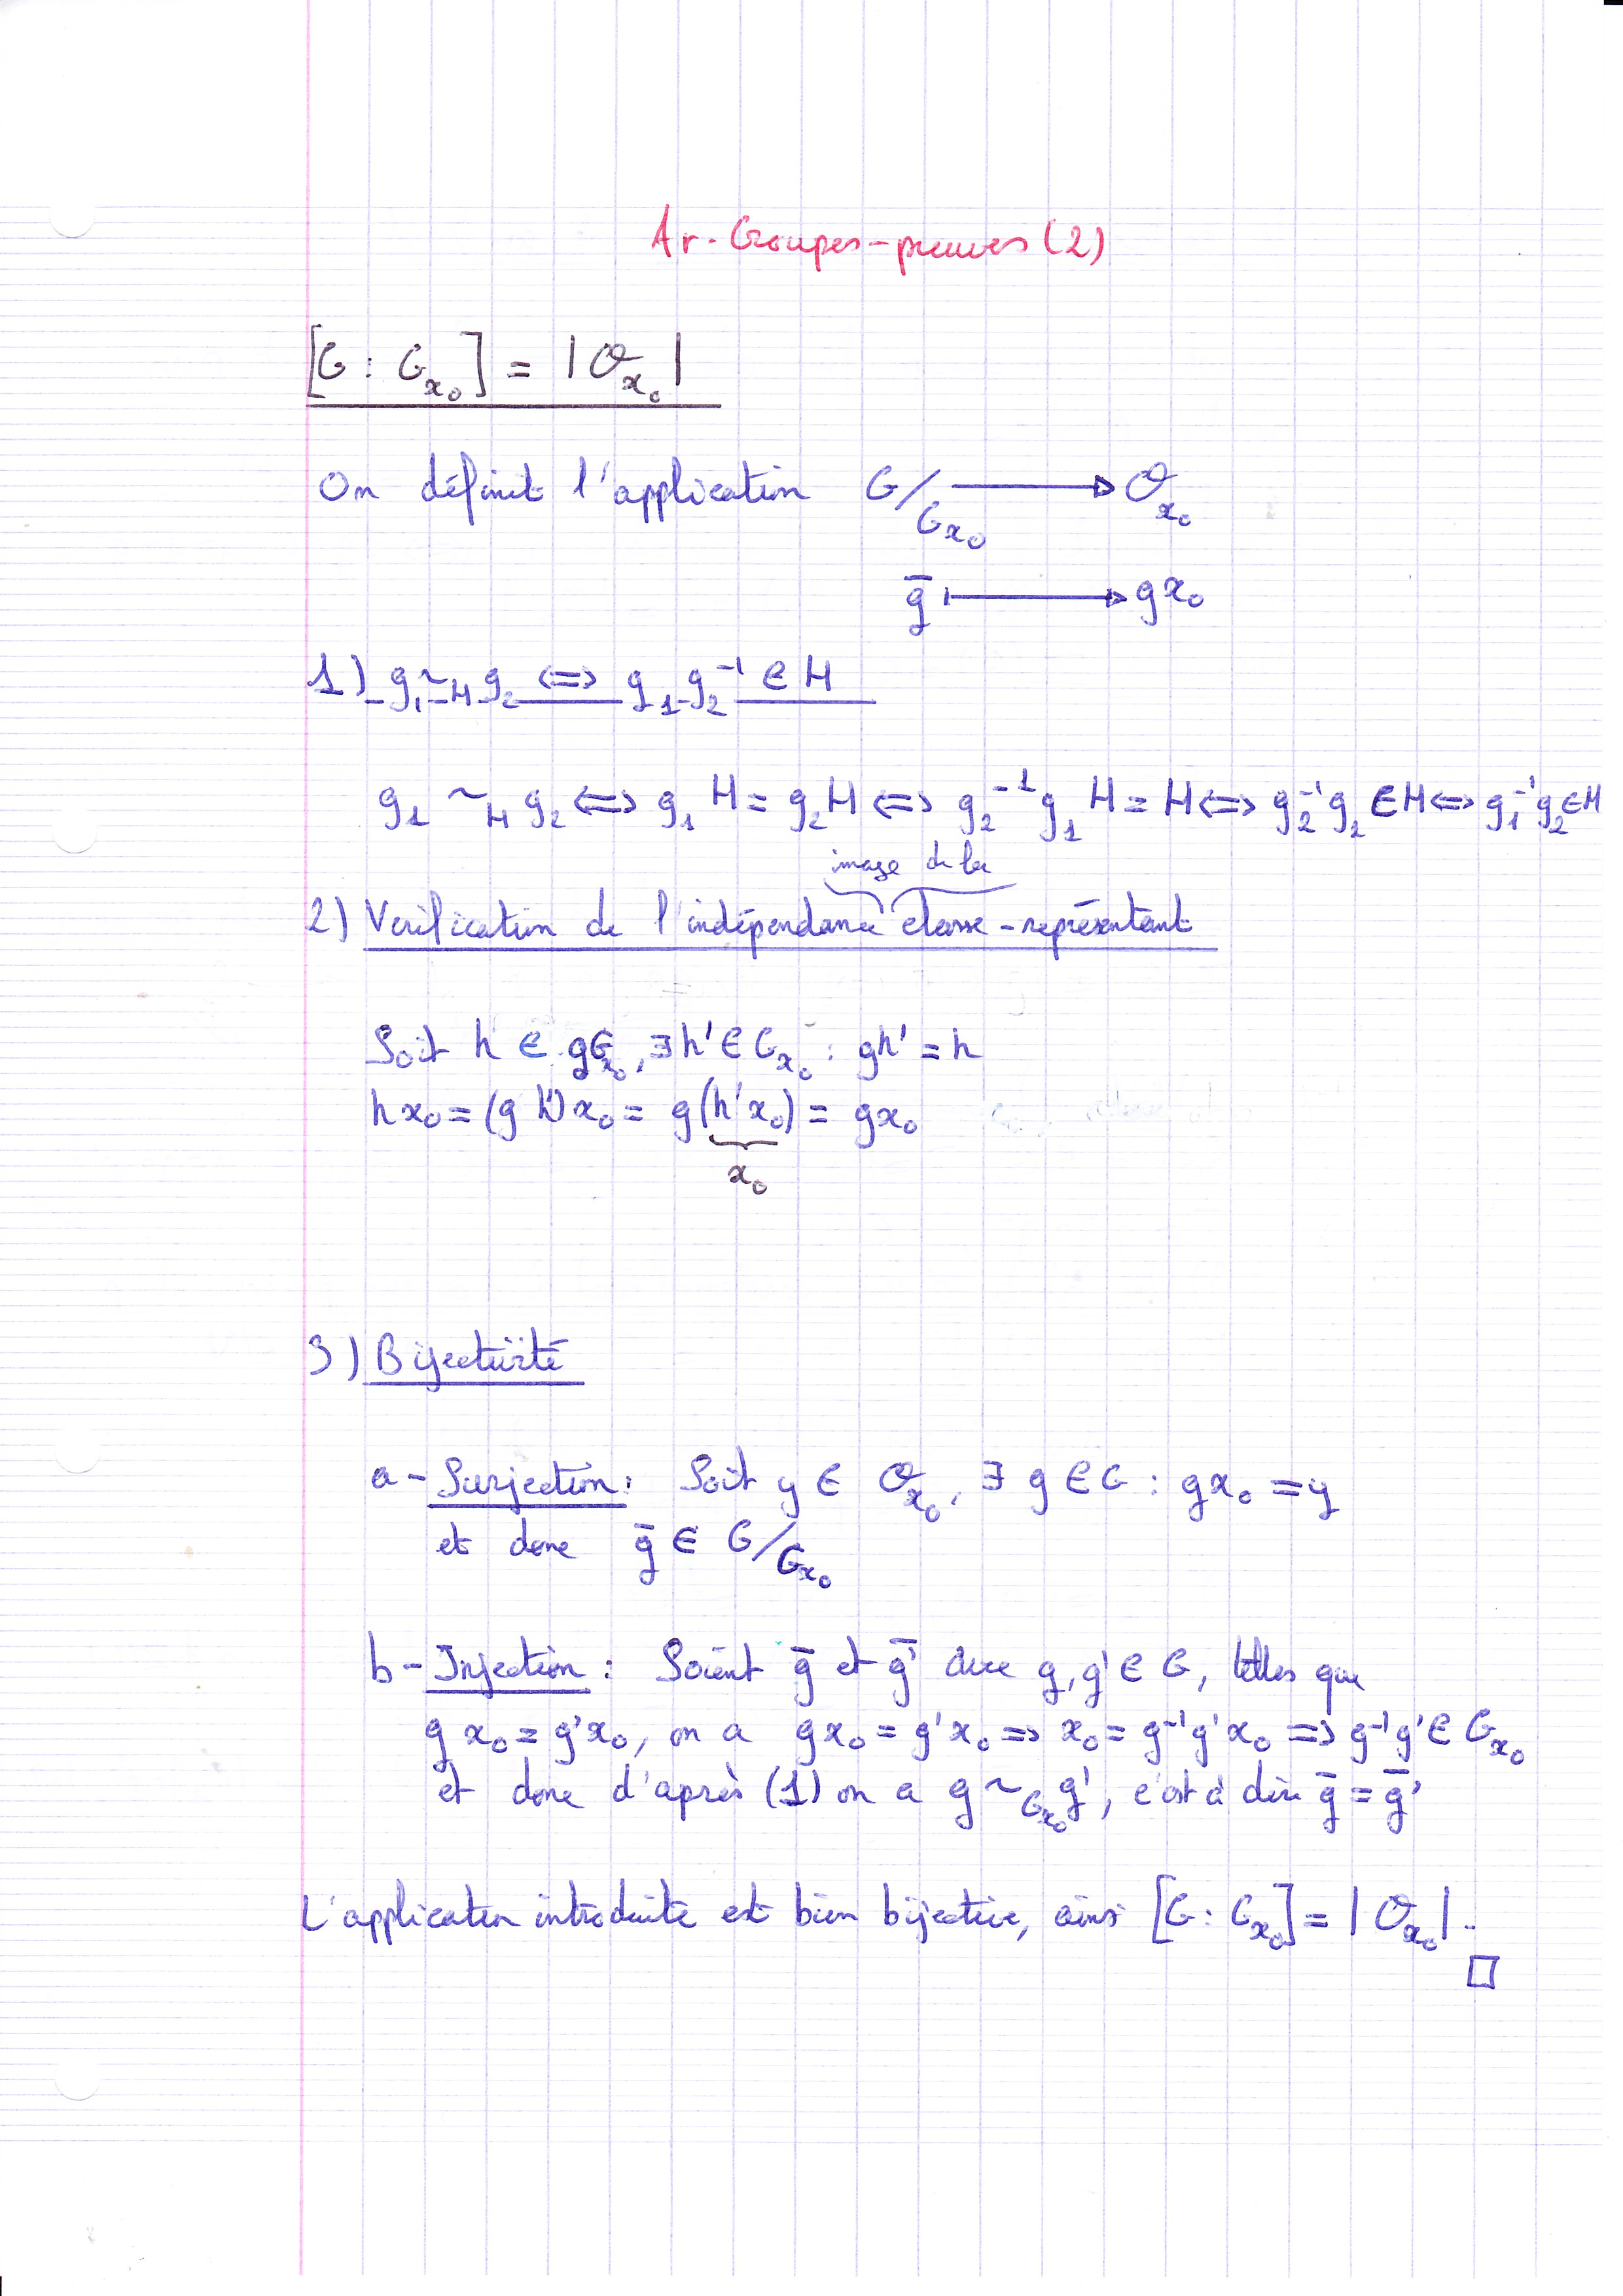 Ar-Groupes-preuves (2)
[G : G_{x_0}] = |𝒪_{x_0}|
On définit l'application G/G_{x_0} ⟶ 𝒪_{x_0}
ḡ ⟼ gx_0
1) g_1 ~_H g_2 ⟺ g_1 g_2^{-1} ∈ H
g_1 ~_H g_2 ⟺ g_1 H = g_2 H ⟺ g_2^{-1} g_1 H = H ⟺ g_2^{-1} g_1 ∈ H ⟺ g_1^{-1} g_2 ∈ H
image de la
2) Verification de l'indépendance classe-représentant
Soit h ∈ gG_{x_0}, ∃ h' ∈ G_{x_0} : gh' = h
hx_0 = (gh')x_0 = g(h'x_0) = gx_0
x_0
3) Bijectivité
a - Surjection : Soit y ∈ 𝒪_{x_0}, ∃ g ∈ G : gx_0 = y
et donc ḡ ∈ G/G_{x_0}
b - Injection : Soient ḡ et ḡ' avec g, g' ∈ G, telles que
gx_0 = g'x_0, on a gx_0 = g'x_0 ⟹ x_0 = g^{-1}g'x_0 ⟹ g^{-1}g' ∈ G_{x_0}
et donc d'après (1) on a g ~_{G_{x_0}} g', c'est à dire ḡ = ḡ'
L'application introduite est bien bijective, ainsi [G : G_{x_0}] = |𝒪_{x_0}|.
□